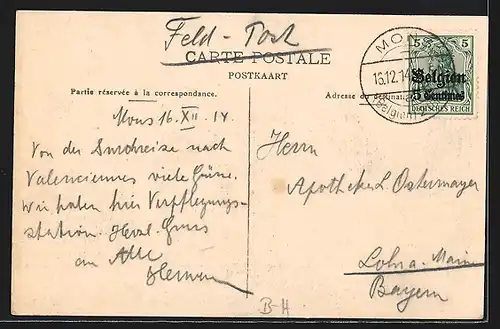 Feld-Post
CARTE POSTALE
POSTKAART
Partie réservée à la correspondance.
Adresse du destinataire
MONS
16.12.14
(Belgien)
5 5
Belgien
5 Centimes
DEUTSCHES REICH
Mons 16. XII. 14
Von der Durchreise nach
Valenciennes viele Grüße.
Wir haben hier Verpflegungs-
station. Herzl. Gruss
an Alle
Herrn
Apotheker L. Ostermayer
Lohr a. Main
Bayern
B-H